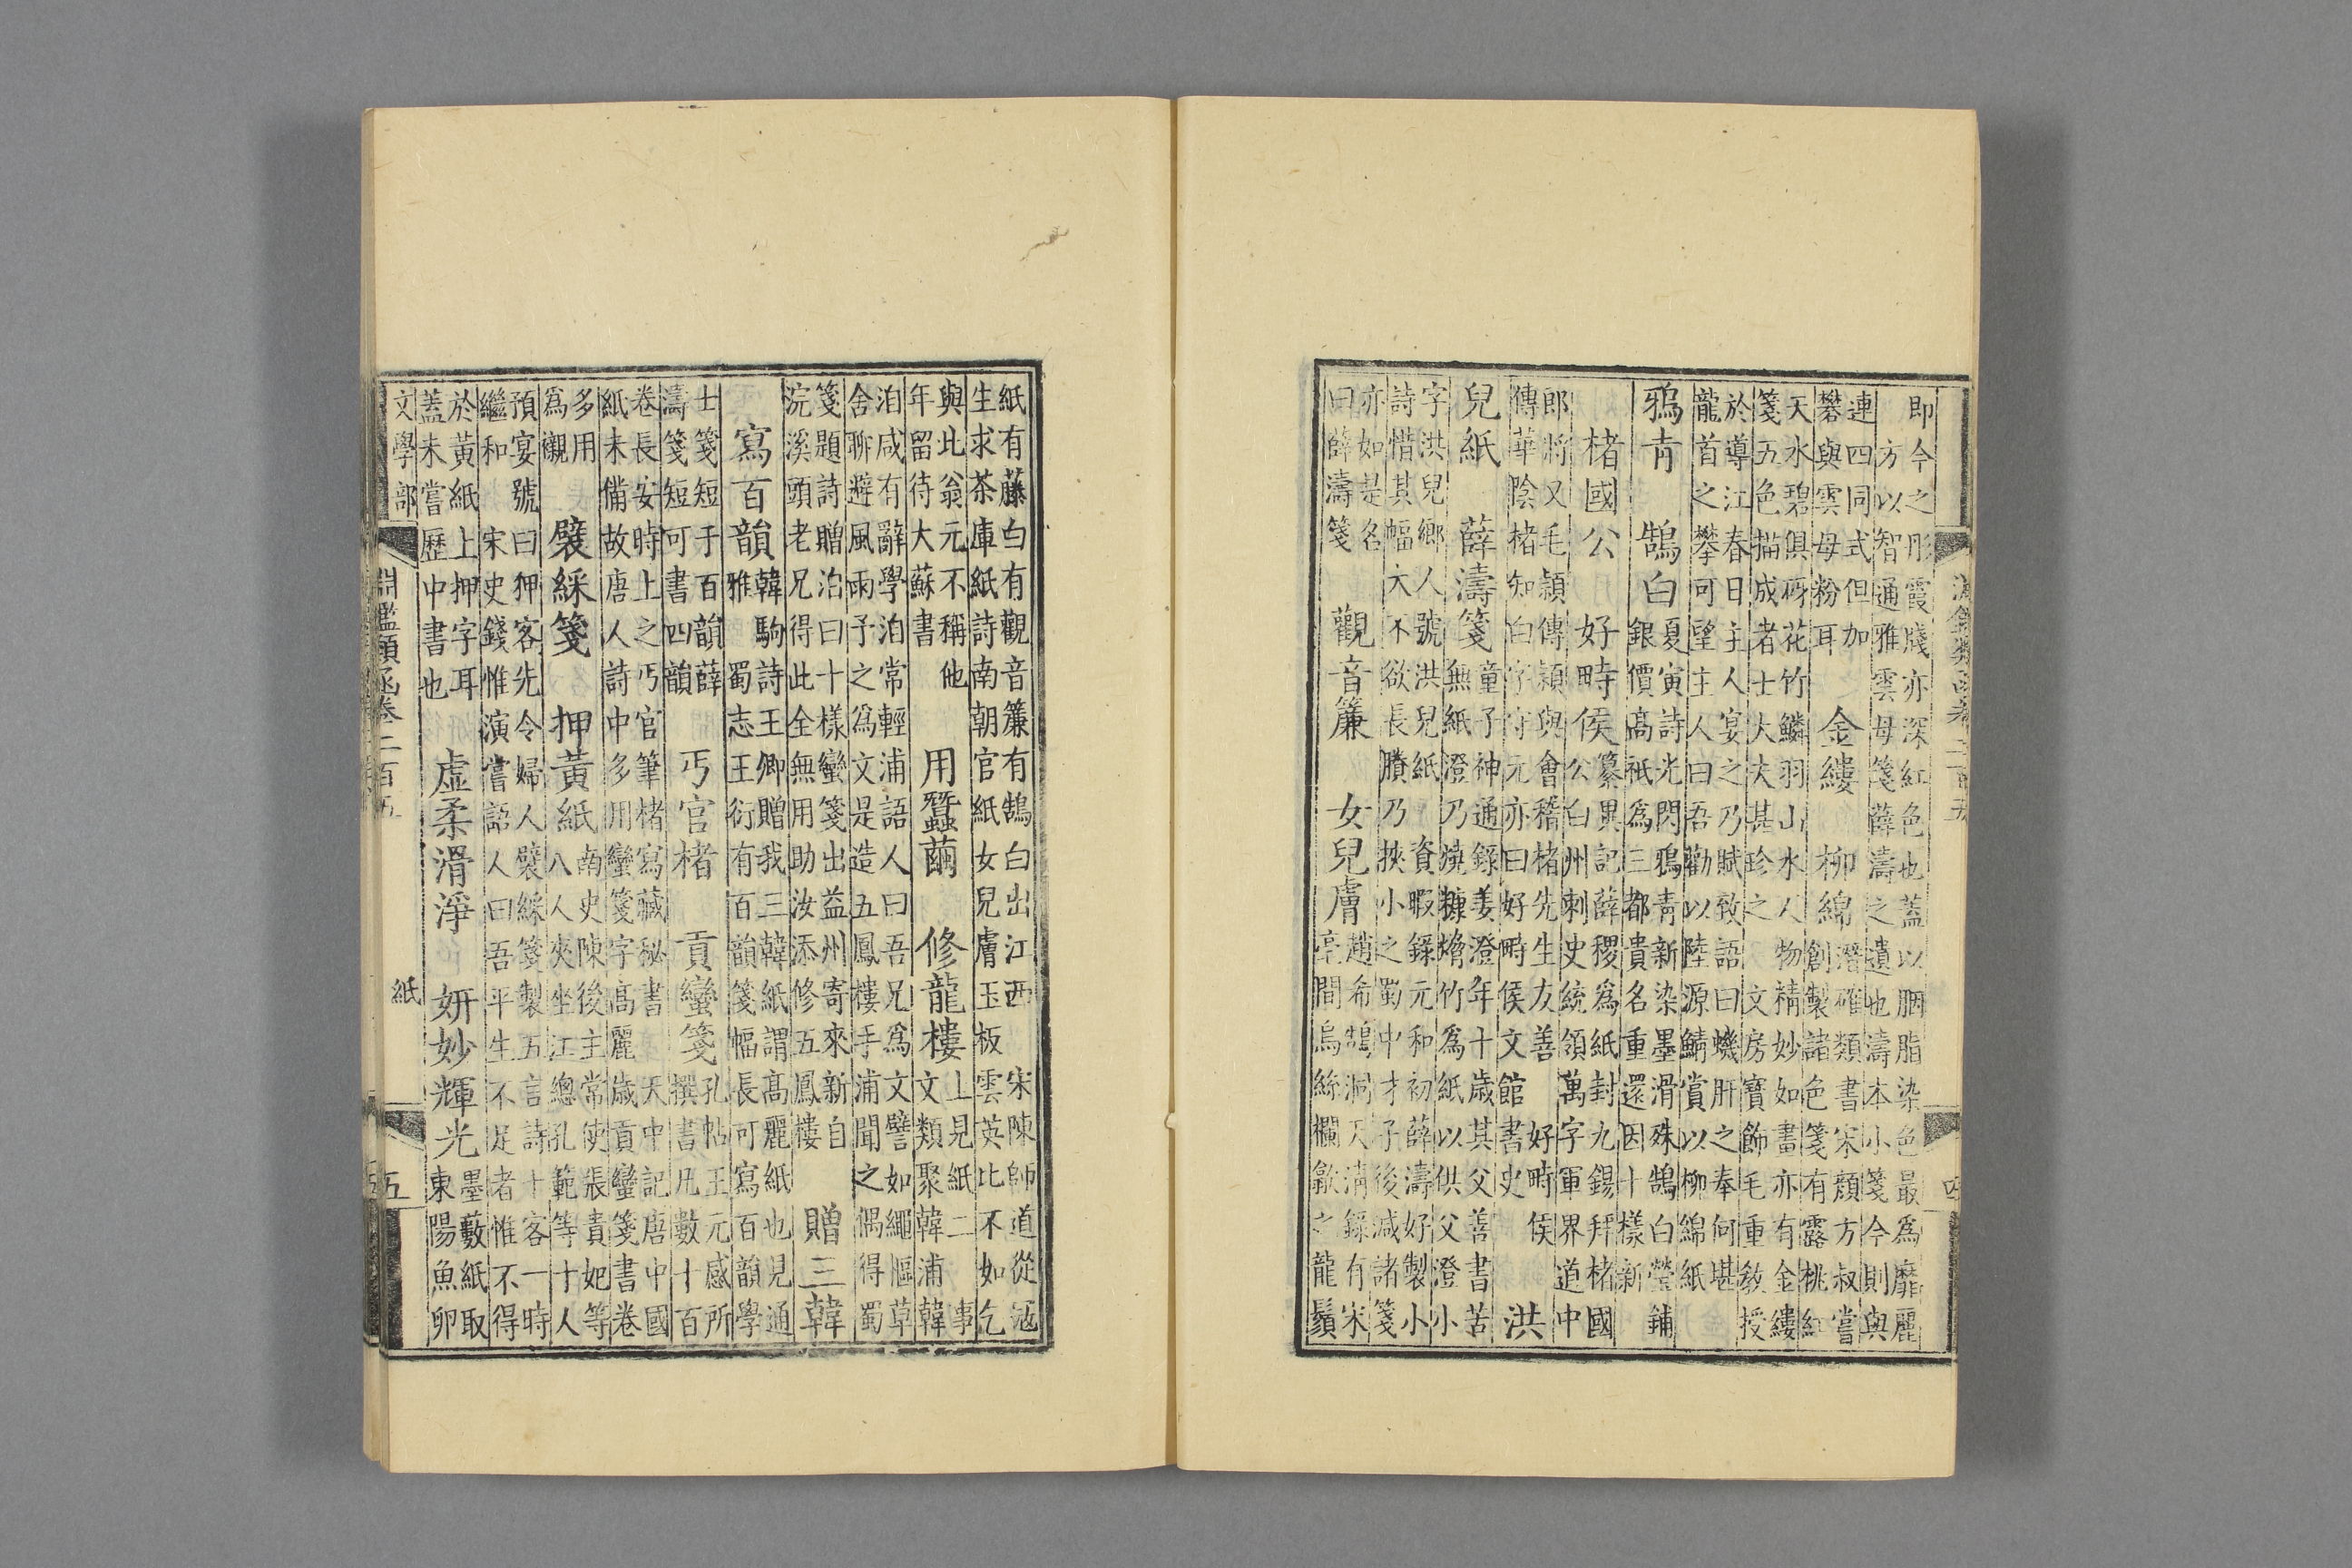 淵鑑類函卷二百五
四
即今之彤霞牋亦深紅色也蓋以胭脂染色最為靡麗
方以智通雅雲母箋薛濤之遺也濤本小箋今則與
連四同式但加
礬與雲母粉耳
金縷 柳綿
潛確類書宋顏方叔嘗
創製諸色箋有露桃紅
天水碧俱砑花竹鱗羽山水人物精妙如畫亦有金縷
箋五色描成者士大夫甚珍之 文房寶飾毛重敎授
於導江春日主人宴之乃賦致語曰蟣肝之奉何堪
龍首之攀可望主人曰吾勸以陸源鯖賞以柳綿紙
鴉青 鵠白
夏寅詩光閃鴉靑新染墨滑殊鵠白瑩鋪
銀價高祇為三都貴名重還因十樣新
楮國公 好畤侯
纂異記薛稷為紙封九錫拜楮國
公白州刺史統領萬字軍界道中
郎將又毛穎傳穎與會稽楮先生友善 好畤侯
傳華陰楮知白字守元亦曰好畤侯文館書史
洪
兒紙 薛濤箋
童子神通錄姜澄年十歲其父善書苦
無紙澄乃燒糠爁竹為紙以供父澄小
字洪兒鄉人號洪兒紙 資暇錄元和初薛濤好製小
詩惜其幅大不欲長賸乃挾小之蜀中才子後減諸箋
亦如是名
曰薛濤箋
觀音簾 女兒膚
趙希鵠洞天淸錄有宋
亭間烏絲欄歙之龍鬚
紙有藤白有觀音簾有鵠白出江西 宋陳師道從寇
生求茶庫紙詩南朝官紙女兒膚玉板雲英比不如乞
與此翁元不稱他
年留待大蘇書
用蠶繭 修龍樓
上見紙二 事
文類聚韓浦韓
洎咸有辭學洎常輕浦語人曰吾兄為文譬如繩樞草
舍聊避風雨予之為文是造五鳳樓手浦聞之偶得蜀
箋題詩贈洎曰十樣蠻箋出益州寄來新自
浣溪頭老兄得此全無用助汝添修五鳳樓
贈三韓
寫百韻
韓駒詩王卿贈我三韓紙謂高麗紙也兒通
雅蜀志王衍有百韻箋幅長可寫百韻學
士箋短于百韻薛
濤箋短可書四韻
丐官楮 貢蠻箋
孔帖王元感所
撰書凡數十百
卷長安時上之丐官筆楮寫藏秘書 天中記唐中國
紙未備故唐人詩中多用蠻箋字高麗歲貢蠻箋書卷
多用
為襯
襞綵箋 押黃紙
南史陳後主常使張貴妃等
八人夾坐江總孔範等十人
預宴號曰狎客先令婦人襞綵箋製五言詩十客一時
繼和 宋史錢惟演嘗語人曰吾平生不足者惟不得
於黃紙上押字耳
蓋未嘗歷中書也
虛柔滑淨 姸妙輝光
墨藪紙取
東陽魚卵
文學部
淵鑑類函卷二百五
紙
五